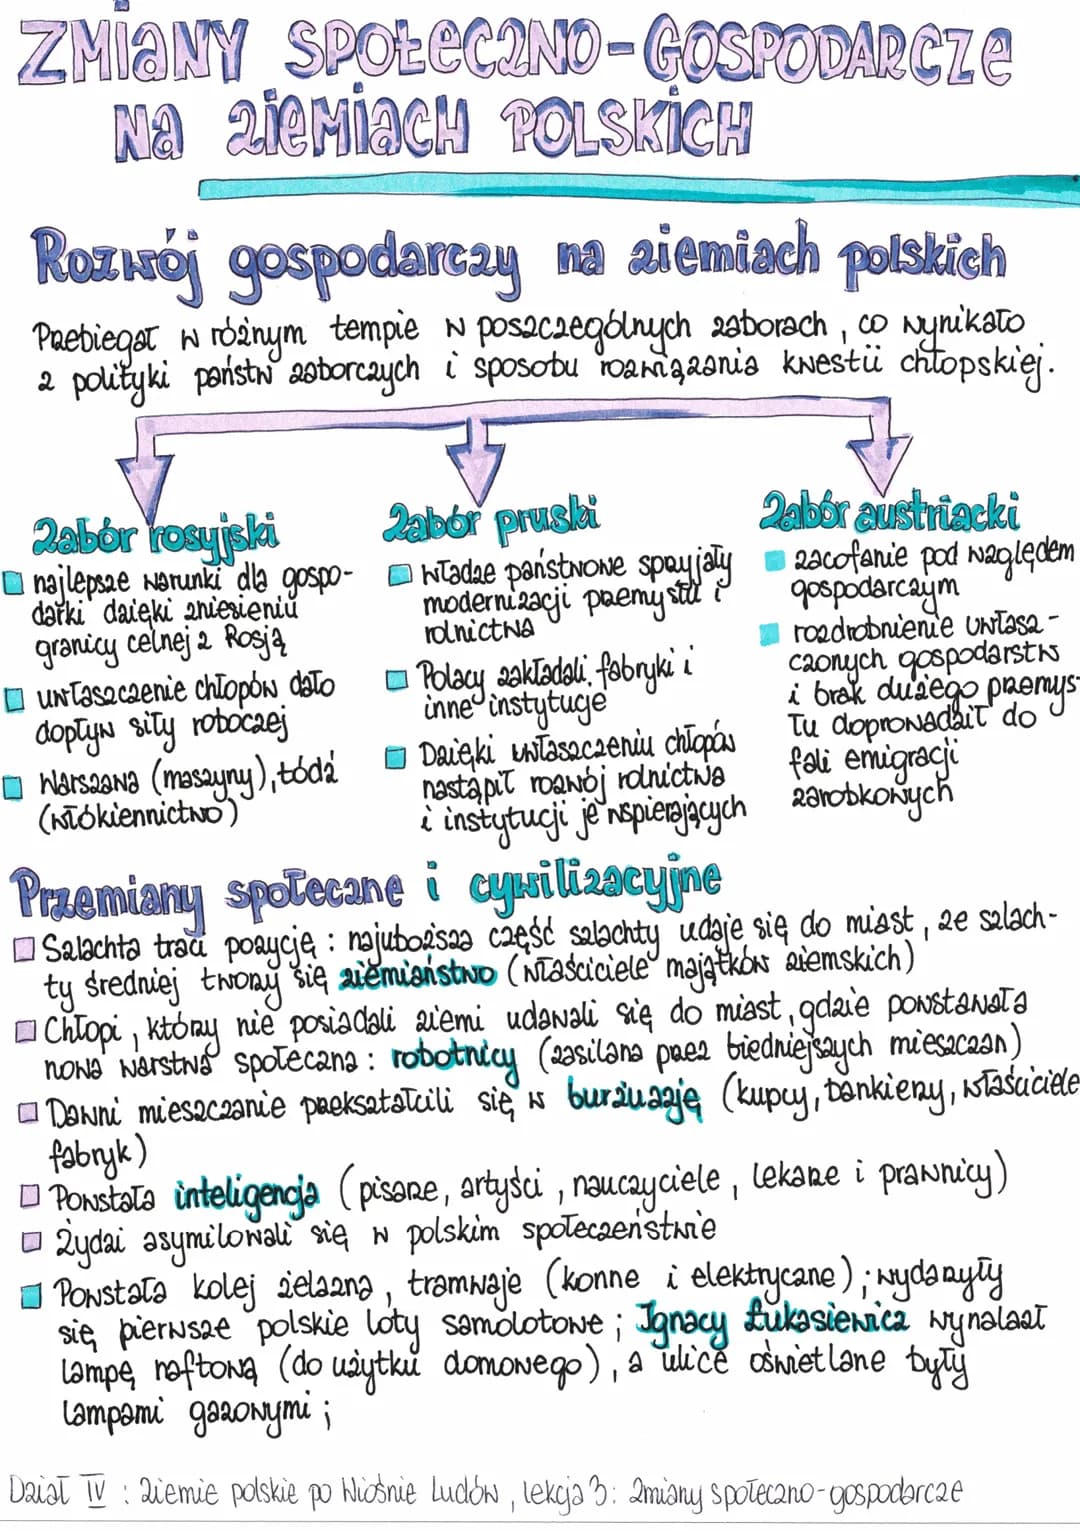 ZMIANY SPOŁECZNO-GOSPODARCZE
NA ZIEMIACH POLSKICH
Rozwój gospodarczy na ziemiach polskich
Przebiegał w różnym tempie w poszczególnych zaborach, co wynikało
z polityki państw zaborczych i sposobu rozwiązania kwestii chłopskiej.
Zabór rosyjski
najlepsze warunki dla gospo-
darki dzięki zniesieniu
granicy celnej z Rosją
uwłaszczenie chłopów dało
dopływ siły roboczej
Warszawa (maszyny), Łódź
(włókiennictwo)
Zabór pruski
Władze państwowe sprzyjały
modernizacji przemysłu i
rolnictwa
Polacy zakładali fabryki i
inne instytucje
Dzięki uwłaszczeniu chłopów
nastąpił rozwój rolnictwa
i instytucji je wspierających
Zabór austriacki
zacofanie pod względem
gospodarczym
rozdrobnienie uwłasz-
czonych gospodarstw
i brak dużego przemys-
łu doprowadził do
fali emigracji
zarobkowych
Przemiany społeczne i cywilizacyjne
Szlachta traci pozycję : najuboższa część szlachty udaje się do miast, ze szlach-
ty średniej tworzy się ziemiaństwo (właściciele majątków ziemskich)
Chłopi, którzy nie posiadali ziemi udawali się do miast, gdzie powstawała
nowa warstwa społeczna : robotnicy (zasilana przez biedniejszych mieszczan)
Dawni mieszczanie przekształcili się w burżuazję (kupcy, bankierzy, właściciele
fabryk)
Powstała inteligencja (pisarze, artyści, nauczyciele, lekarze i prawnicy)
Żydzi asymilowali się w polskim społeczeństwie
Powstała kolej żelazna, tramwaje (konne i elektryczne) ; wydarzyły
się pierwsze polskie loty samolotowe ; Ignacy Łukasiewicz wynalazł
lampę naftową (do użytku domowego), a ulice oświetlane były
lampami gazowymi ;
Dział IV : Ziemie polskie po Wiośnie Ludów, lekcja 3: Zmiany społeczno-gospodarcze